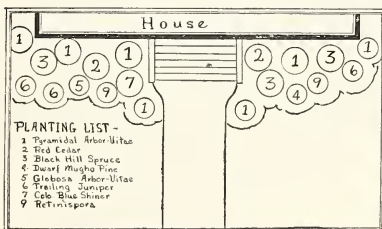 House
1 3 1 2 1 2 1 3 1
6 6 5 9 7 3 4 9 6
1 1
PLANTING LIST -
1 Pyramidal Arbor-Vitae
2 Red Cedar
3 Black Hill Spruce
4 Dwarf Mugho Pine
5 Globosa Arbor-Vitae
6 Trailing Juniper
7 Colo Blue Shiner
9 Retinispora